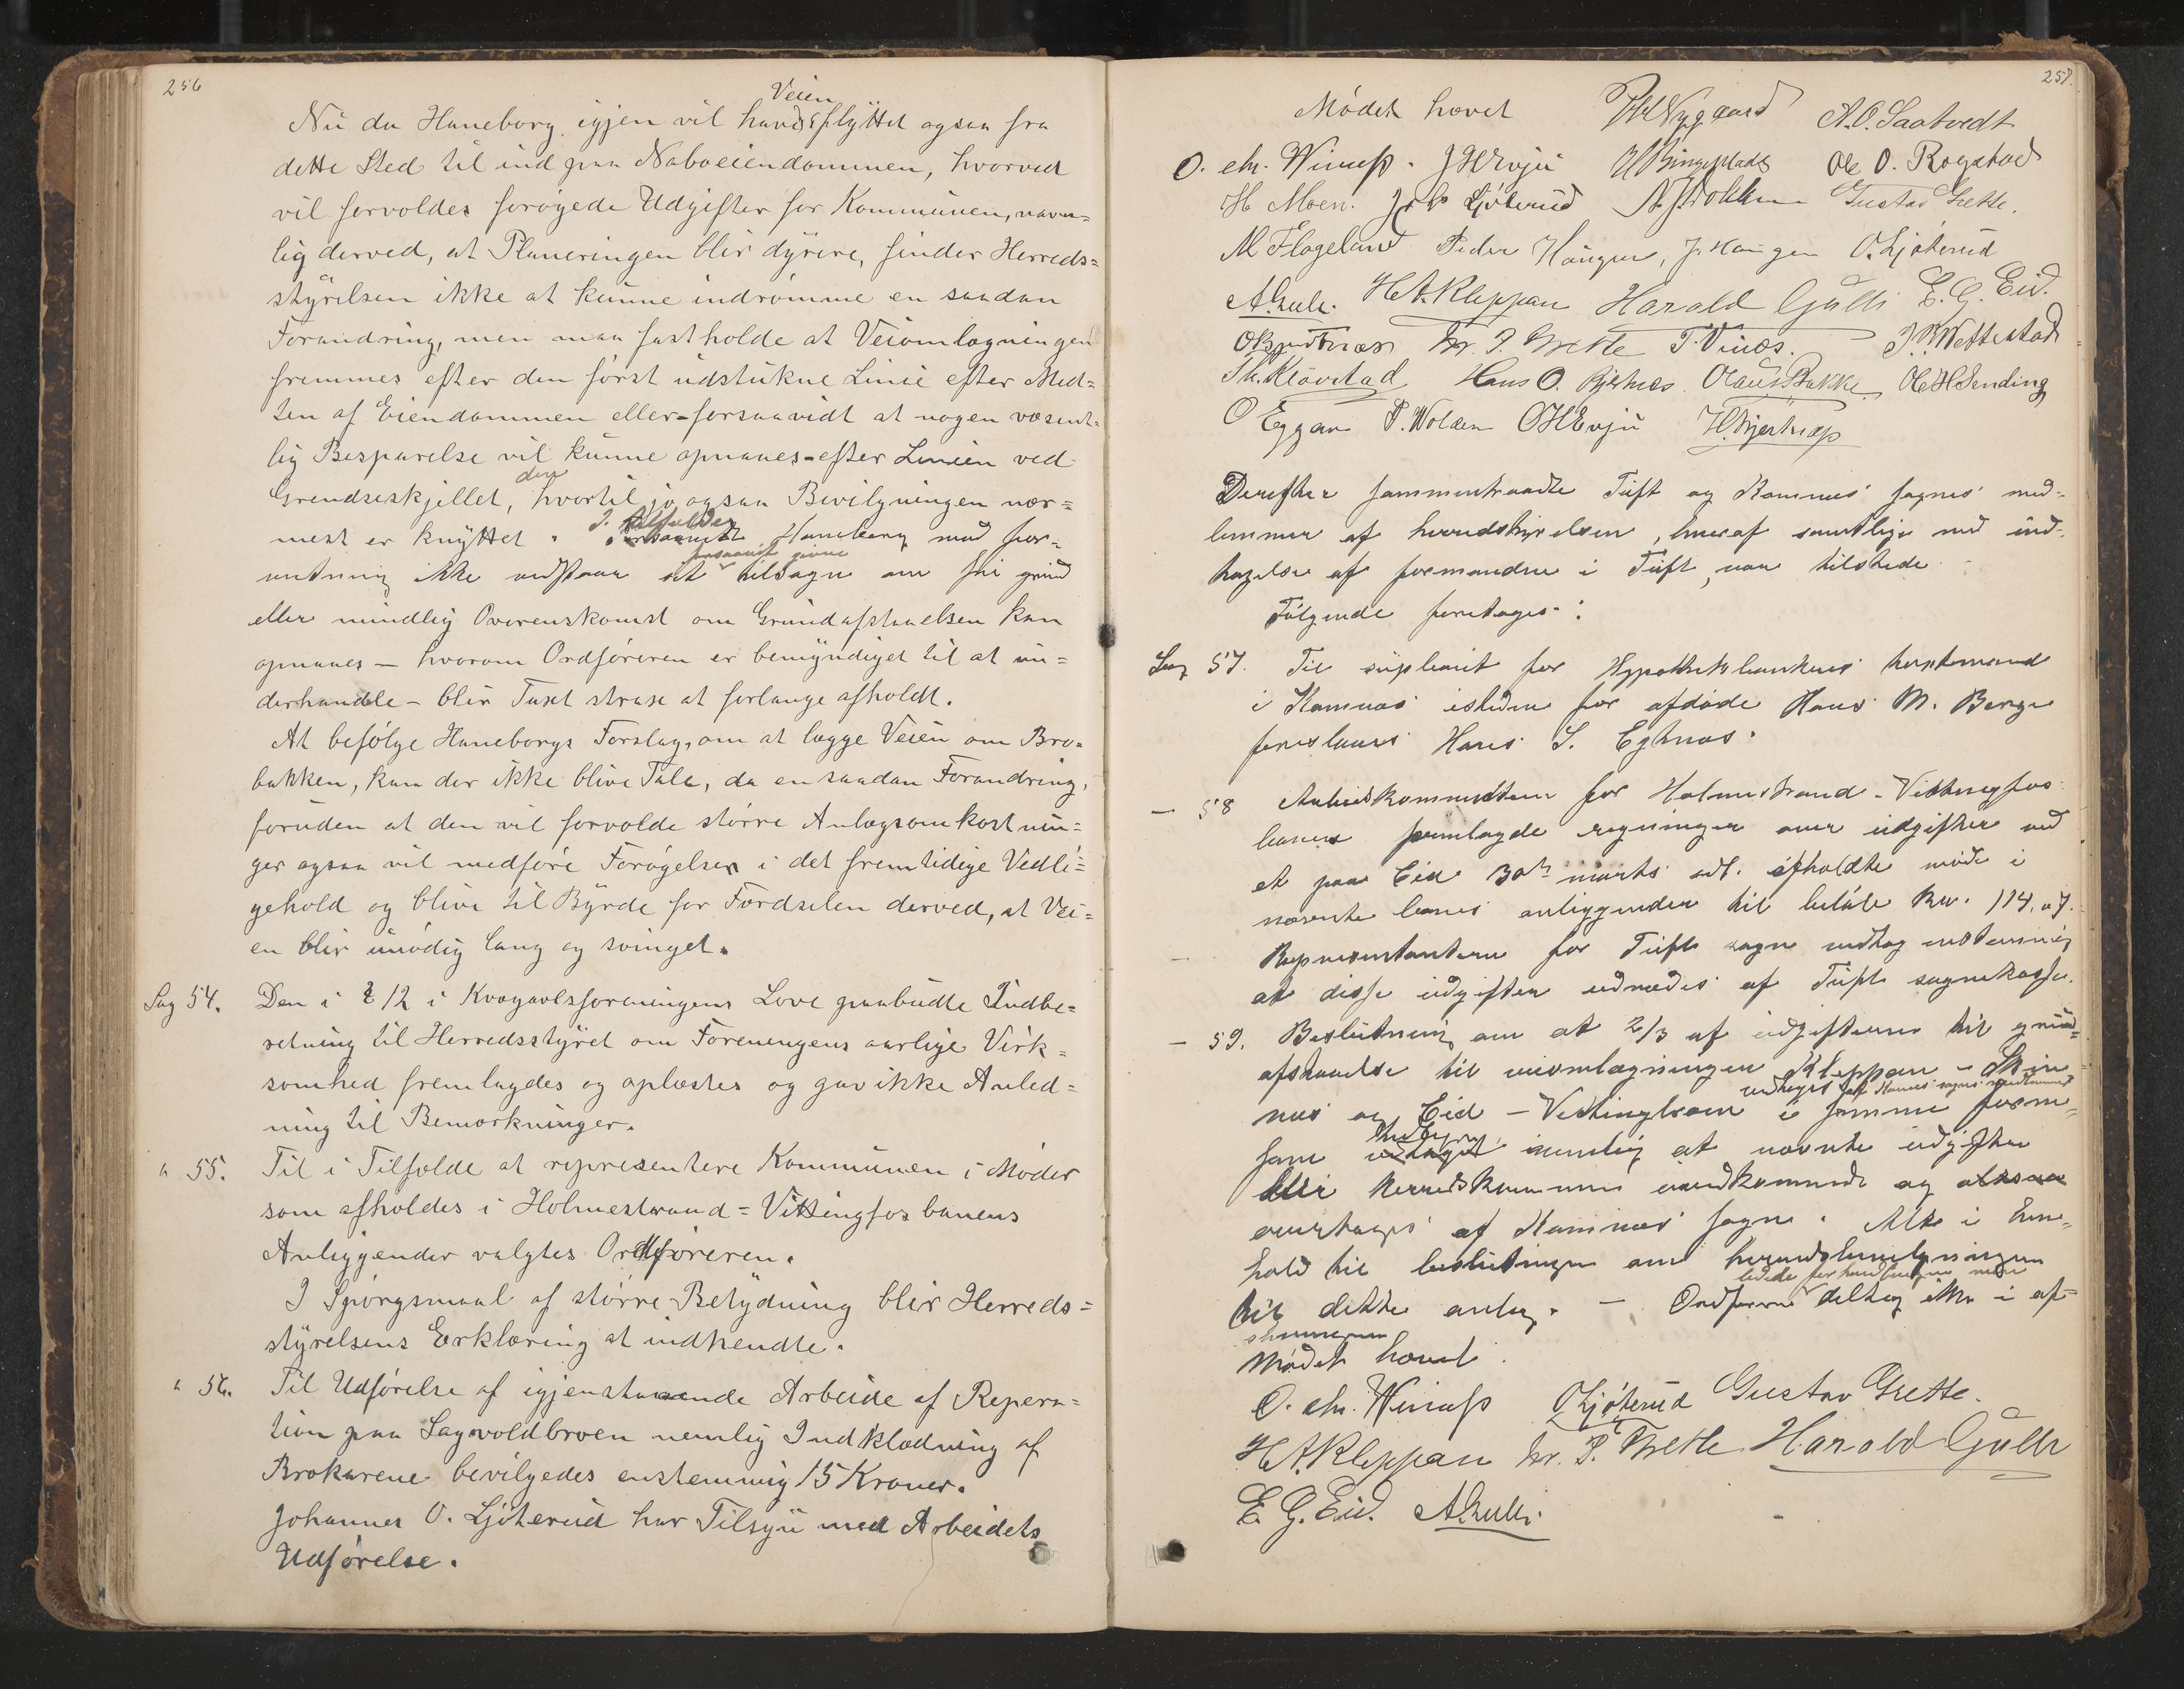 256
Veien
Nu da Haneborg igjen vil have flyttet ogsaa fra
dette Sted til ind paa Naboeiendommen, hvorved
vil forvoldes forøgede Udgifter for Kommunen, navn=
lig derved, at Planeringen blir dyrere, finder Herreds=
styrelsen ikke at kunne indrømme en saadan
Forandring, men maa fastholde at Veiomlægningen
fremmes efter den først udstukne Linie efter Mid=
ten af Eiendommen eller - forsaavidt at nogen væsent=
lig Besparelse vil kunne opnaaes - efter Linien ved
den
Grendseskjellet, hvortil jo ogsaa Bevilgningen nær=
mest er knyttet. I Tilfælde Haneborg mod for=
forsaavidt givne
ventning ikke vedstaar sit tilsagn om fri grund
eller mindlig Overenskomst om Grundafstaaelsen kan
opnaaes — hvorom Ordføreren er bemyndiget til at un=
derhandle - blir Taxt strax at forlange afholdt.
At befølge Haneborgs Forslag, om at lægge Veien om Bro=
bakken, kan der ikke blive Tale, da en saadan Forandring,
foruden at den vil forvolde større Anlægsomkostnin=
ger ogsaa vil medføre Forøgelser i det fremtidige Vedli=
gehold og blive til Byrde for Færdselen derved, at Vei=
en blir unødig lang og svinget.
Sag 54. Den i § 12 i Kvægavlsforeningens Love paabudte Indbe=
retning til Herredsstyret om Foreningens aarlige Virk=
somhed fremlagdes og oplæstes og gav ikke Anled=
ning til Bemærkninger.
" 55. Til i Tilfælde at representere Kommunen i Møder
som afholdes i Holmestrand = Vittingfos banens
Anliggender valgtes Ordføreren.
I Spørgsmaal af større Betydning blir Herreds=
styrelsens Erklæring at indhendte.
" 56. Til Udførelse af igjenstaaende Arbeide af Repera=
tion paa Sagvoldbroen nemlig Indklædning af
Brokarene bevilgedes enstemmig 15 Kroner.
Johannes O. Ljøterud har Tilsyn med Arbeidets
Udførelse.
257.
Mødet hævet P. Nygaard A. O. Saatvedt
O. Chr. Winæss. J H Evju H Bingeplads Ole O. Rogstad
H. Moen. Joh Ljøterud Gustav Grette.
M Flageland Peder Haugen, J. Haugen O. Ljøterud
A. Gulli. H A Kleppan Harald Gulli E. G. Eid.
Kr. P. Grette T. Vinæs. J. Wettestad
Th. Kløvstad Hans O. Bjertnæs Olaus Bakke Ole H Sending
O Eggar P. Wolden O H Evju H. Bjertnæs
Derefter sammentraadte Tuft og Komnes sognes med=
lemmer af herredsstyrelsen, hvoraf samtlige med ind=
tagelse af formanden i Tuft, var tilstede.
Følgende foretages:
Sag 57. Til supleant for Hypothekbankens takstmand
i Komnæs istedenfor afdøde Hans M. Berge
foreslaaes Hans S. Egtnæs.
— 58 Arbeidskommitteen for Holmestrand - Vittingfos
banen fremlagde regninger over udgifter ved
et paa Eid 30te marts sidstl. afholdte møde i
nævnte banes anliggender til beløb Kr. 114.07.
Representantene for Tuft sogn vedtog enstemmig
at disse udgifter udredes af Tuft sognekasse.
— 59. Beslutning om at 2/3 af udgifterne til grund=
afstaaelse til veiomlægningen Kleppan - Skin
vedtages af Komnes sogns medlemmer
nes og Eid - Vittingbroen i samme form
som nemlig at nævnte udgifter
blir herredskommunen uvedkommende og
overtages af Komnæs sogn. Alt i hen=
hold til beslutningen om herredsbevilgningen
ledede forhandlingerne men
til dette anlæg. — Ordføreren deltog ikke i af=
stemningen
Mødet hævet.
O. Chr. Winæss O Ljøterud Gustav Grette.
H A Kleppan Kr. P. Grette Harald Gulli
E. G. Eid. A. Gulli.